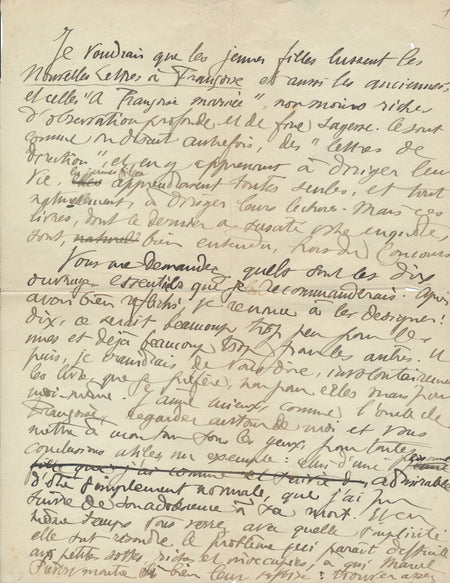 1
Je voudrais que les jeunes filles lussent les
Nouvelles Lettres à Françoise et aussi les anciennes,
et celles "A Françoise mariée", non moins riches
d'observation profonde, et de fine sagesse. Ce sont
comme on disait autrefois, des "lettres de
direction", et en y apprenant à diriger leur
vie, les jeunes filles apprendraient toutes seules, et tout
naturellement, à diriger leurs lectures. Mais ces
livres, dont le dernier a suscité votre enquête,
sont, naturell bien entendu, hors de Concours
Vous me demandez quels sont les dix
ouvrages essentiels que je recommanderais. Après
avoir bien réfléchi, je renonce à les désigner!
dix, ce serait beaucoup trop peu pour les
unes et déjà beaucoup trop pour les autres. Et
puis, je craindrais de vous dire, involontairement
les livres que je préfère, non pour elles mais pour
moi-même. J'aime mieux, comme l'oncle de
Françoise, regarder autour de moi et vous
mettre à mon tour sous les yeux, pour toutes
conclusions utiles un exemple: celui d'une jeune
fille que j'ai connue et suivie admirable
d'être simplement normale, que j'ai pu
suivre de son adolescence à sa mort.
même temps vous verrez avec quelle simplicité
elle sut résoudre ce problème qui paraît difficile
aux petites sottes, riches et inoccupées, à qui Marcel
Prévost montre si bien leur sottise